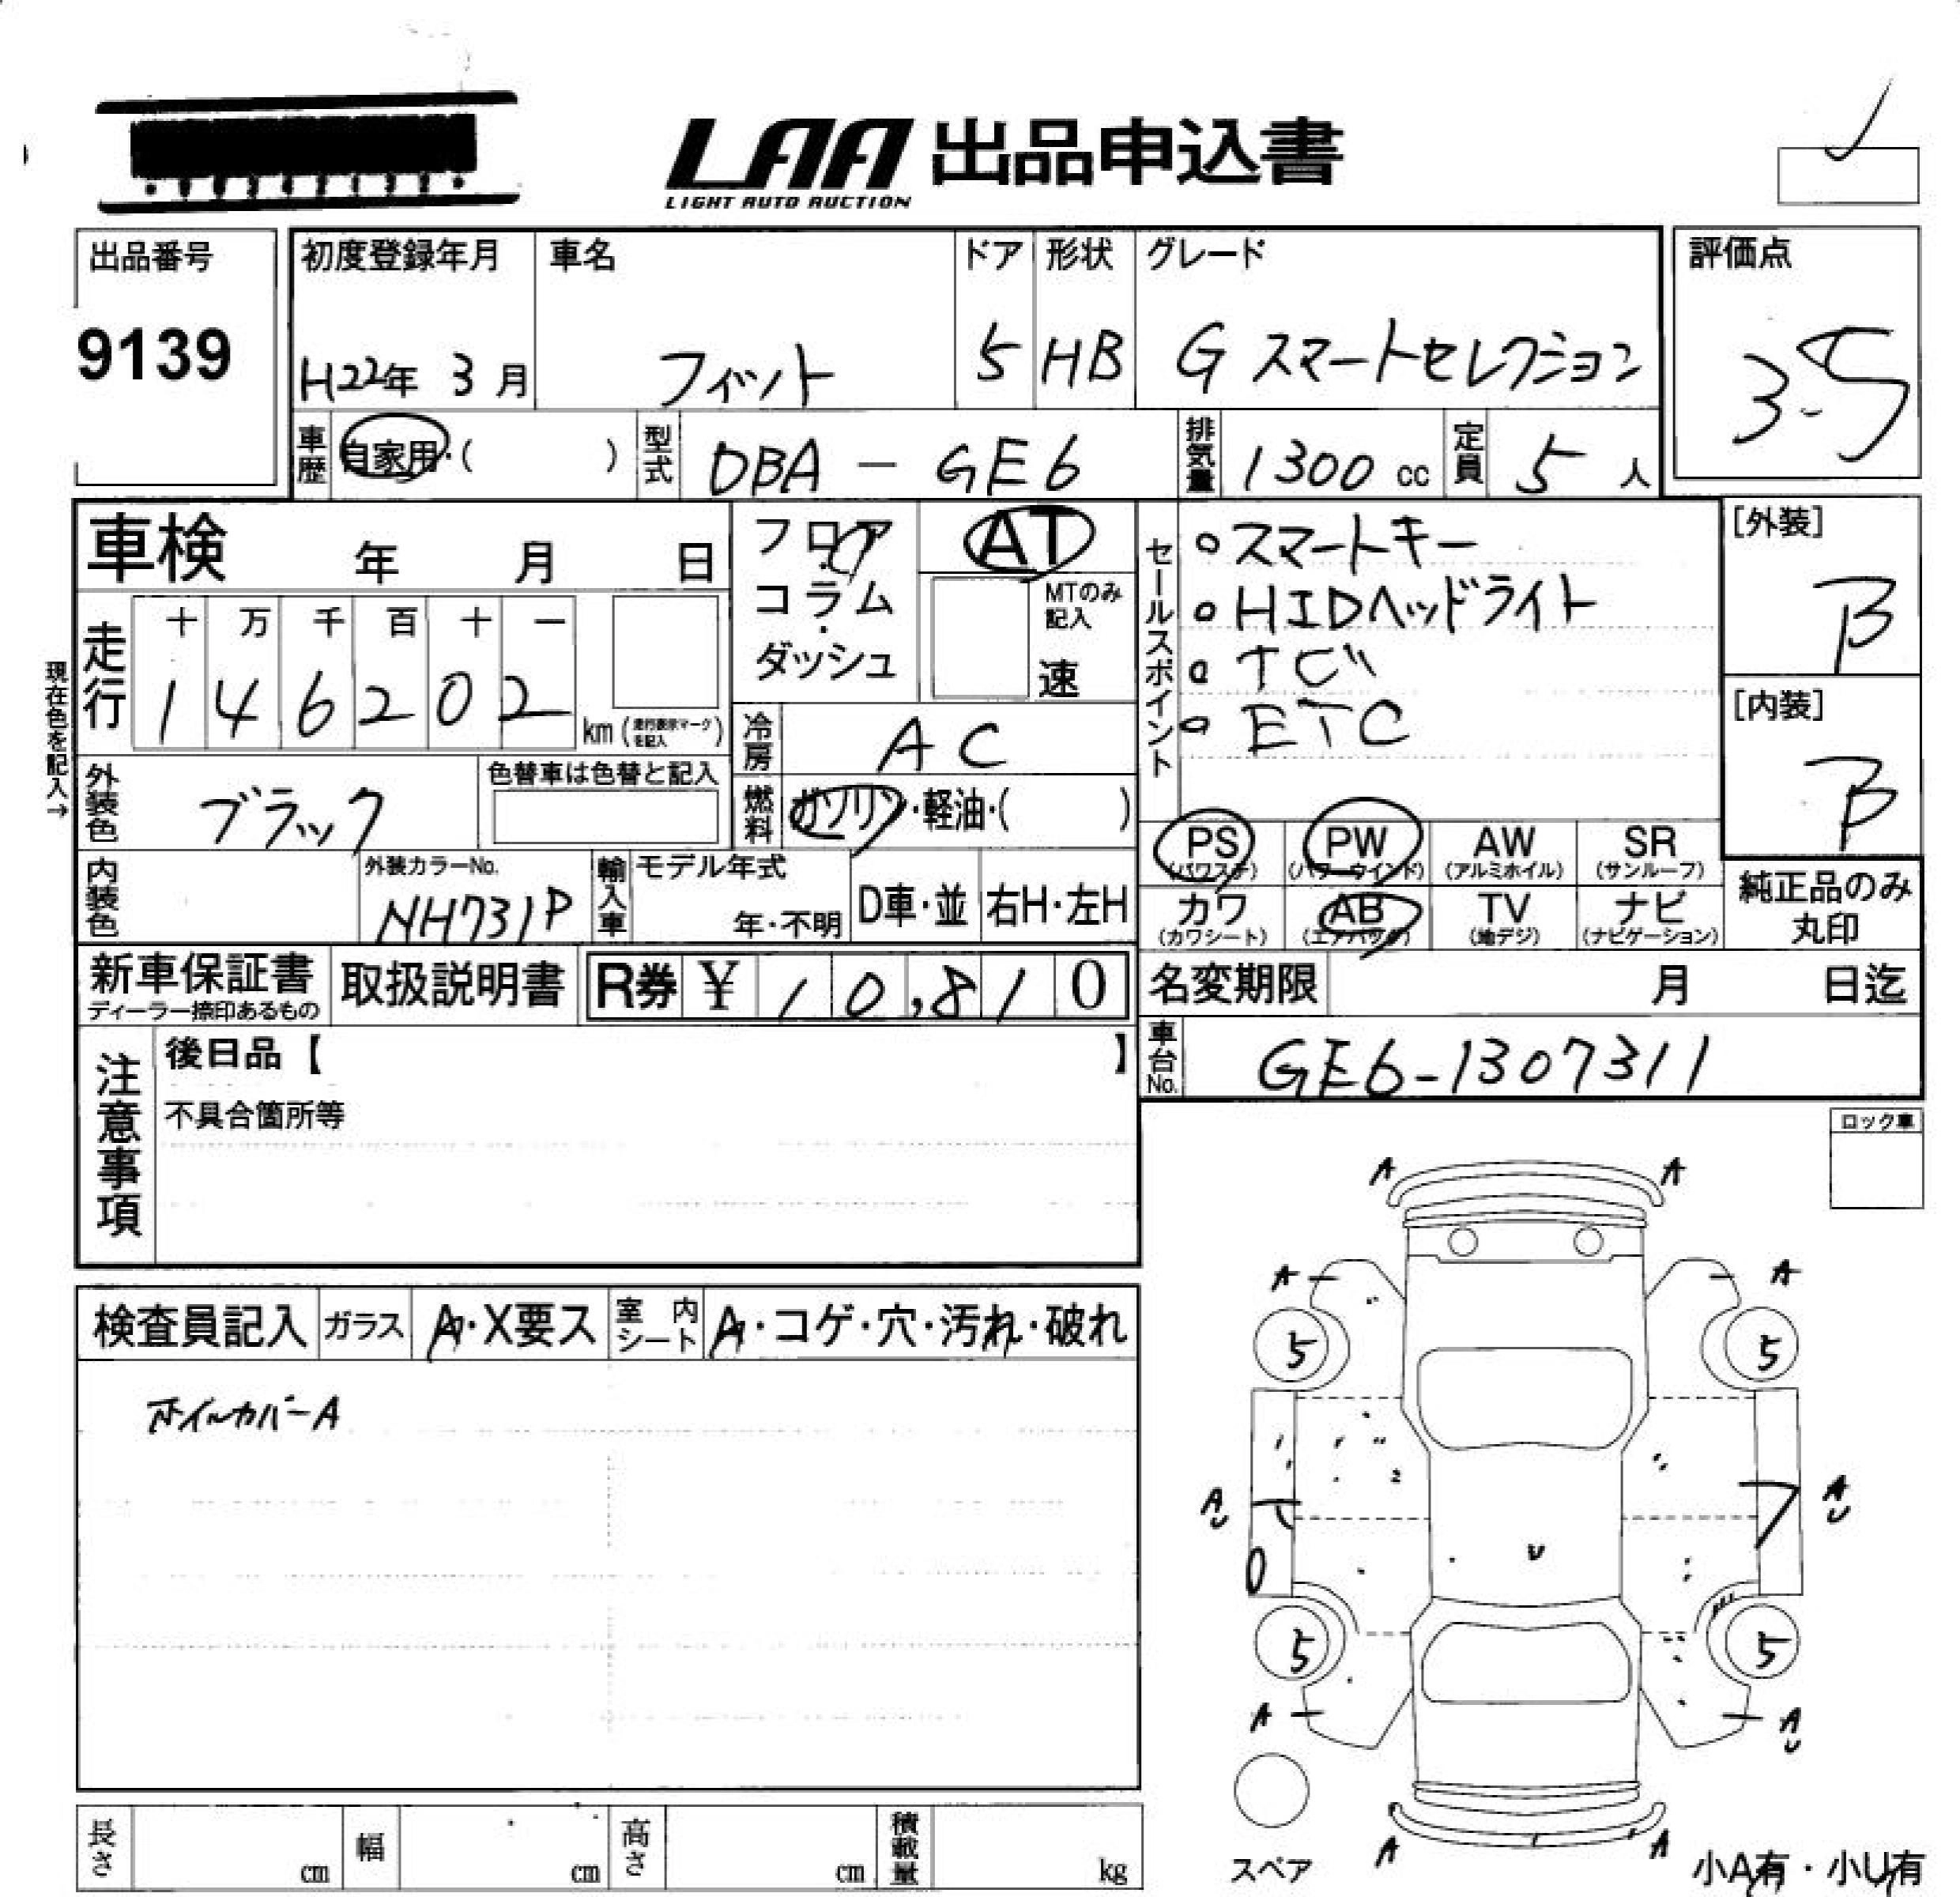 LAA 出品申込書
LIGHT AUTO AUCTION
出品番号
9139
初度登録年月
H22年 3月
車名
フィット
ドア
5
形状
HB
グレード
G スマートセレクション
評価点
3.5
車歴 自家用・( )
型式 DBA - GE6
排気量 1300 cc
定員 5 人
車検 年 月 日
フロア・コラム・ダッシュ
AT
MTのみ記入
速
セールスポイント
○スマートキー
○HIDヘッドライト
○ETC
[外装]
B
[内装]
B
現在色を記入→
走行
十 万 千 百 十 一
1 4 6 2 0 2
km (走行表示マークを記入)
冷房 AC
外装色 ブラック
色替車は色替と記入
燃料 ガソリン・軽油・( )
内装色
外装カラーNo.
NH731P
輸入車
モデル年式
年・不明
D車・並
右H・左H
PS (パワステ)
PW (パワーウインド)
AW (アルミホイル)
SR (サンルーフ)
カワ (カワシート)
AB (エアバッグ)
TV (地デジ)
ナビ (ナビゲーション)
純正品のみ丸印
新車保証書
ディーラー捺印あるもの
取扱説明書
R券 ¥ 10,810
名変期限 月 日迄
車台No. GE6-1307311
注意事項
後日品【 】
不具合箇所等
ロック車
検査員記入
ガラス A・X要ス
室内シート A・コゲ・穴・汚れ・破れ
ホイルカバーA
A A
A A
5 5
A A
5 5
A A
A A
スペア
小A有・小U有
長さ cm
幅 cm
高さ cm
積載量 kg